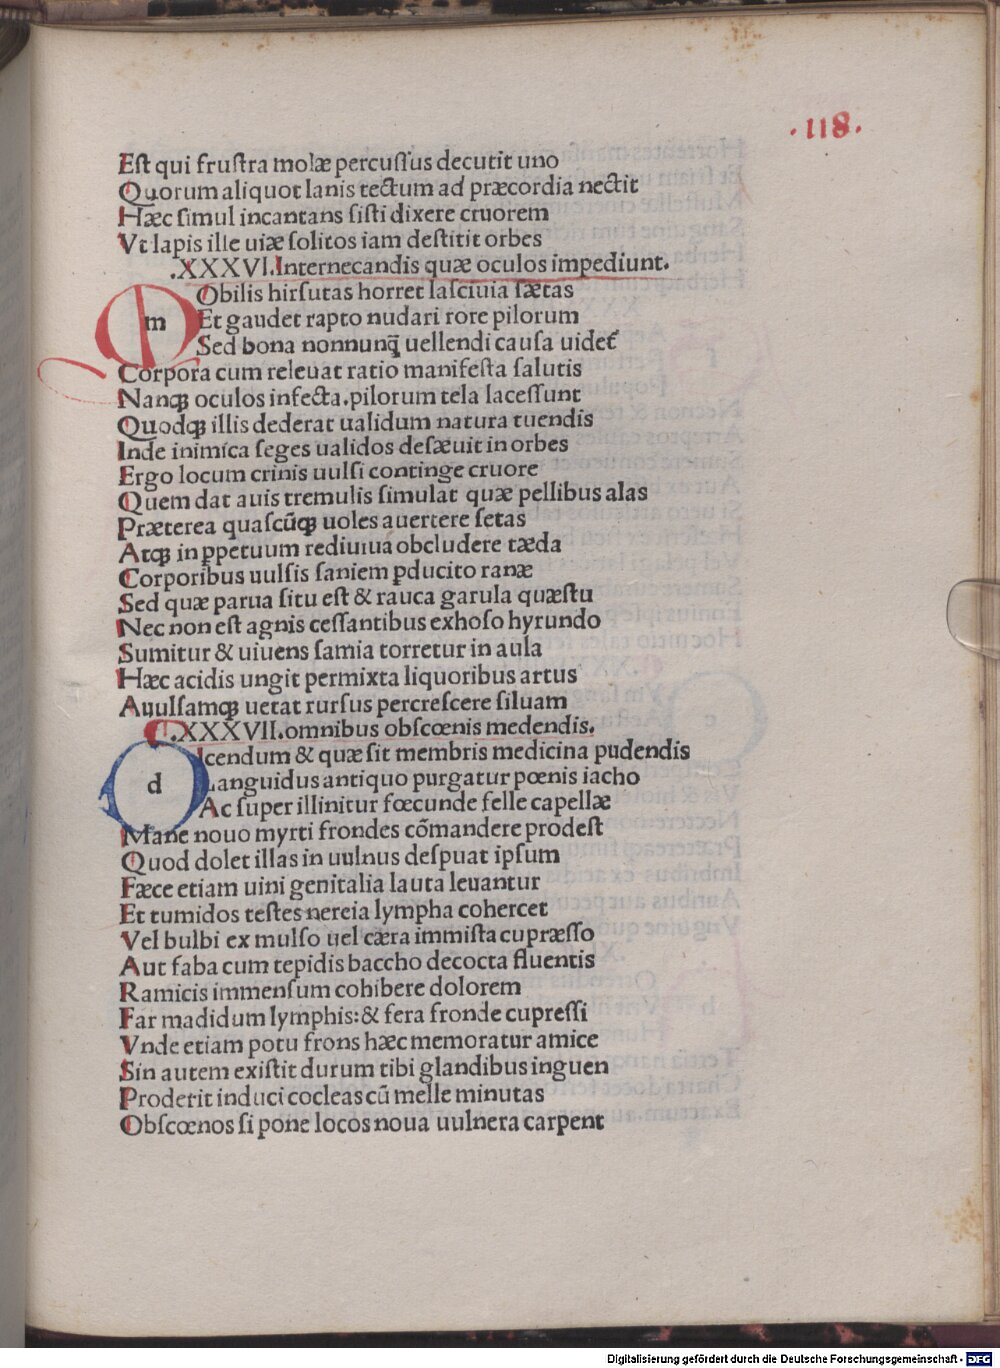 .118.
Eſt qui fruſtra molæ percuſſus decutit uno
Quorum aliquot lanis tectum ad præcordia nectit
Hæc ſimul incantans ſiſti dixere cruorem
Vt lapis ille uiæ ſolitos iam deſtitit orbes
.XXXVI.Internecandis quæ oculos impediunt.
m Obilis hirſutas horret laſciuia ſætas
Et gaudet rapto nudari rore pilorum
Sed bona nonnunq̄ uellendi cauſa uidet᷑
Corpora cum releuat ratio manifeſta ſalutis
Nanqꝫ oculos infecta.pilorum tela laceſſunt
Quodqꝫ illis dederat ualidum natura tuendis
Inde inimica ſeges ualidos deſæuit in orbes
Ergo locum crinis uulſi continge cruore
Quem dat auis tremulis ſimulat quæ pellibus alas
Præterea quaſcūqꝫ uoles auertere ſetas
Atqꝫ in ꝑpetuum rediuiua obcludere tæda
Corporibus uulſis ſaniem ꝓducito ranæ
Sed quæ parua ſitu eſt & rauca garula quæſtu
Nec non eſt agnis ceſſantibus exhoſo hyrundo
Sumitur & uiuens ſamia torretur in aula
Hæc acidis ungit permixta liquoribus artus
Auulſamqꝫ uetat rurſus percreſcere ſiluam
.XXXVII.omnibus obſcœnis medendis.
d Icendum & quæ ſit membris medicina pudendis
Languidus antiquo purgatur pœnis iacho
Ac ſuper illinitur fœcunde felle capellæ
Mane nouo myrti frondes cōmandere prodeſt
Quod dolet illas in uulnus deſpuat ipſum
Fæce etiam uini genitalia lauta leuantur
Et tumidos teſtes nereia lympha cohercet
Vel bulbi ex mulſo uel cæra immiſta cupræſſo
Aut faba cum tepidis baccho decocta fluentis
Ramicis immenſum cohibere dolorem
Far madidum lymphis:& fera fronde cupreſſi
Vnde etiam potu frons hæc memoratur amice
Sin autem exiſtit durum tibi glandibus inguen
Proderit induci cocleas cū melle minutas
Obſcœnos ſi pone locos noua uulnera carpent
Digitalisierung gefördert durch die Deutsche Forschungsgemeinschaft - DFG